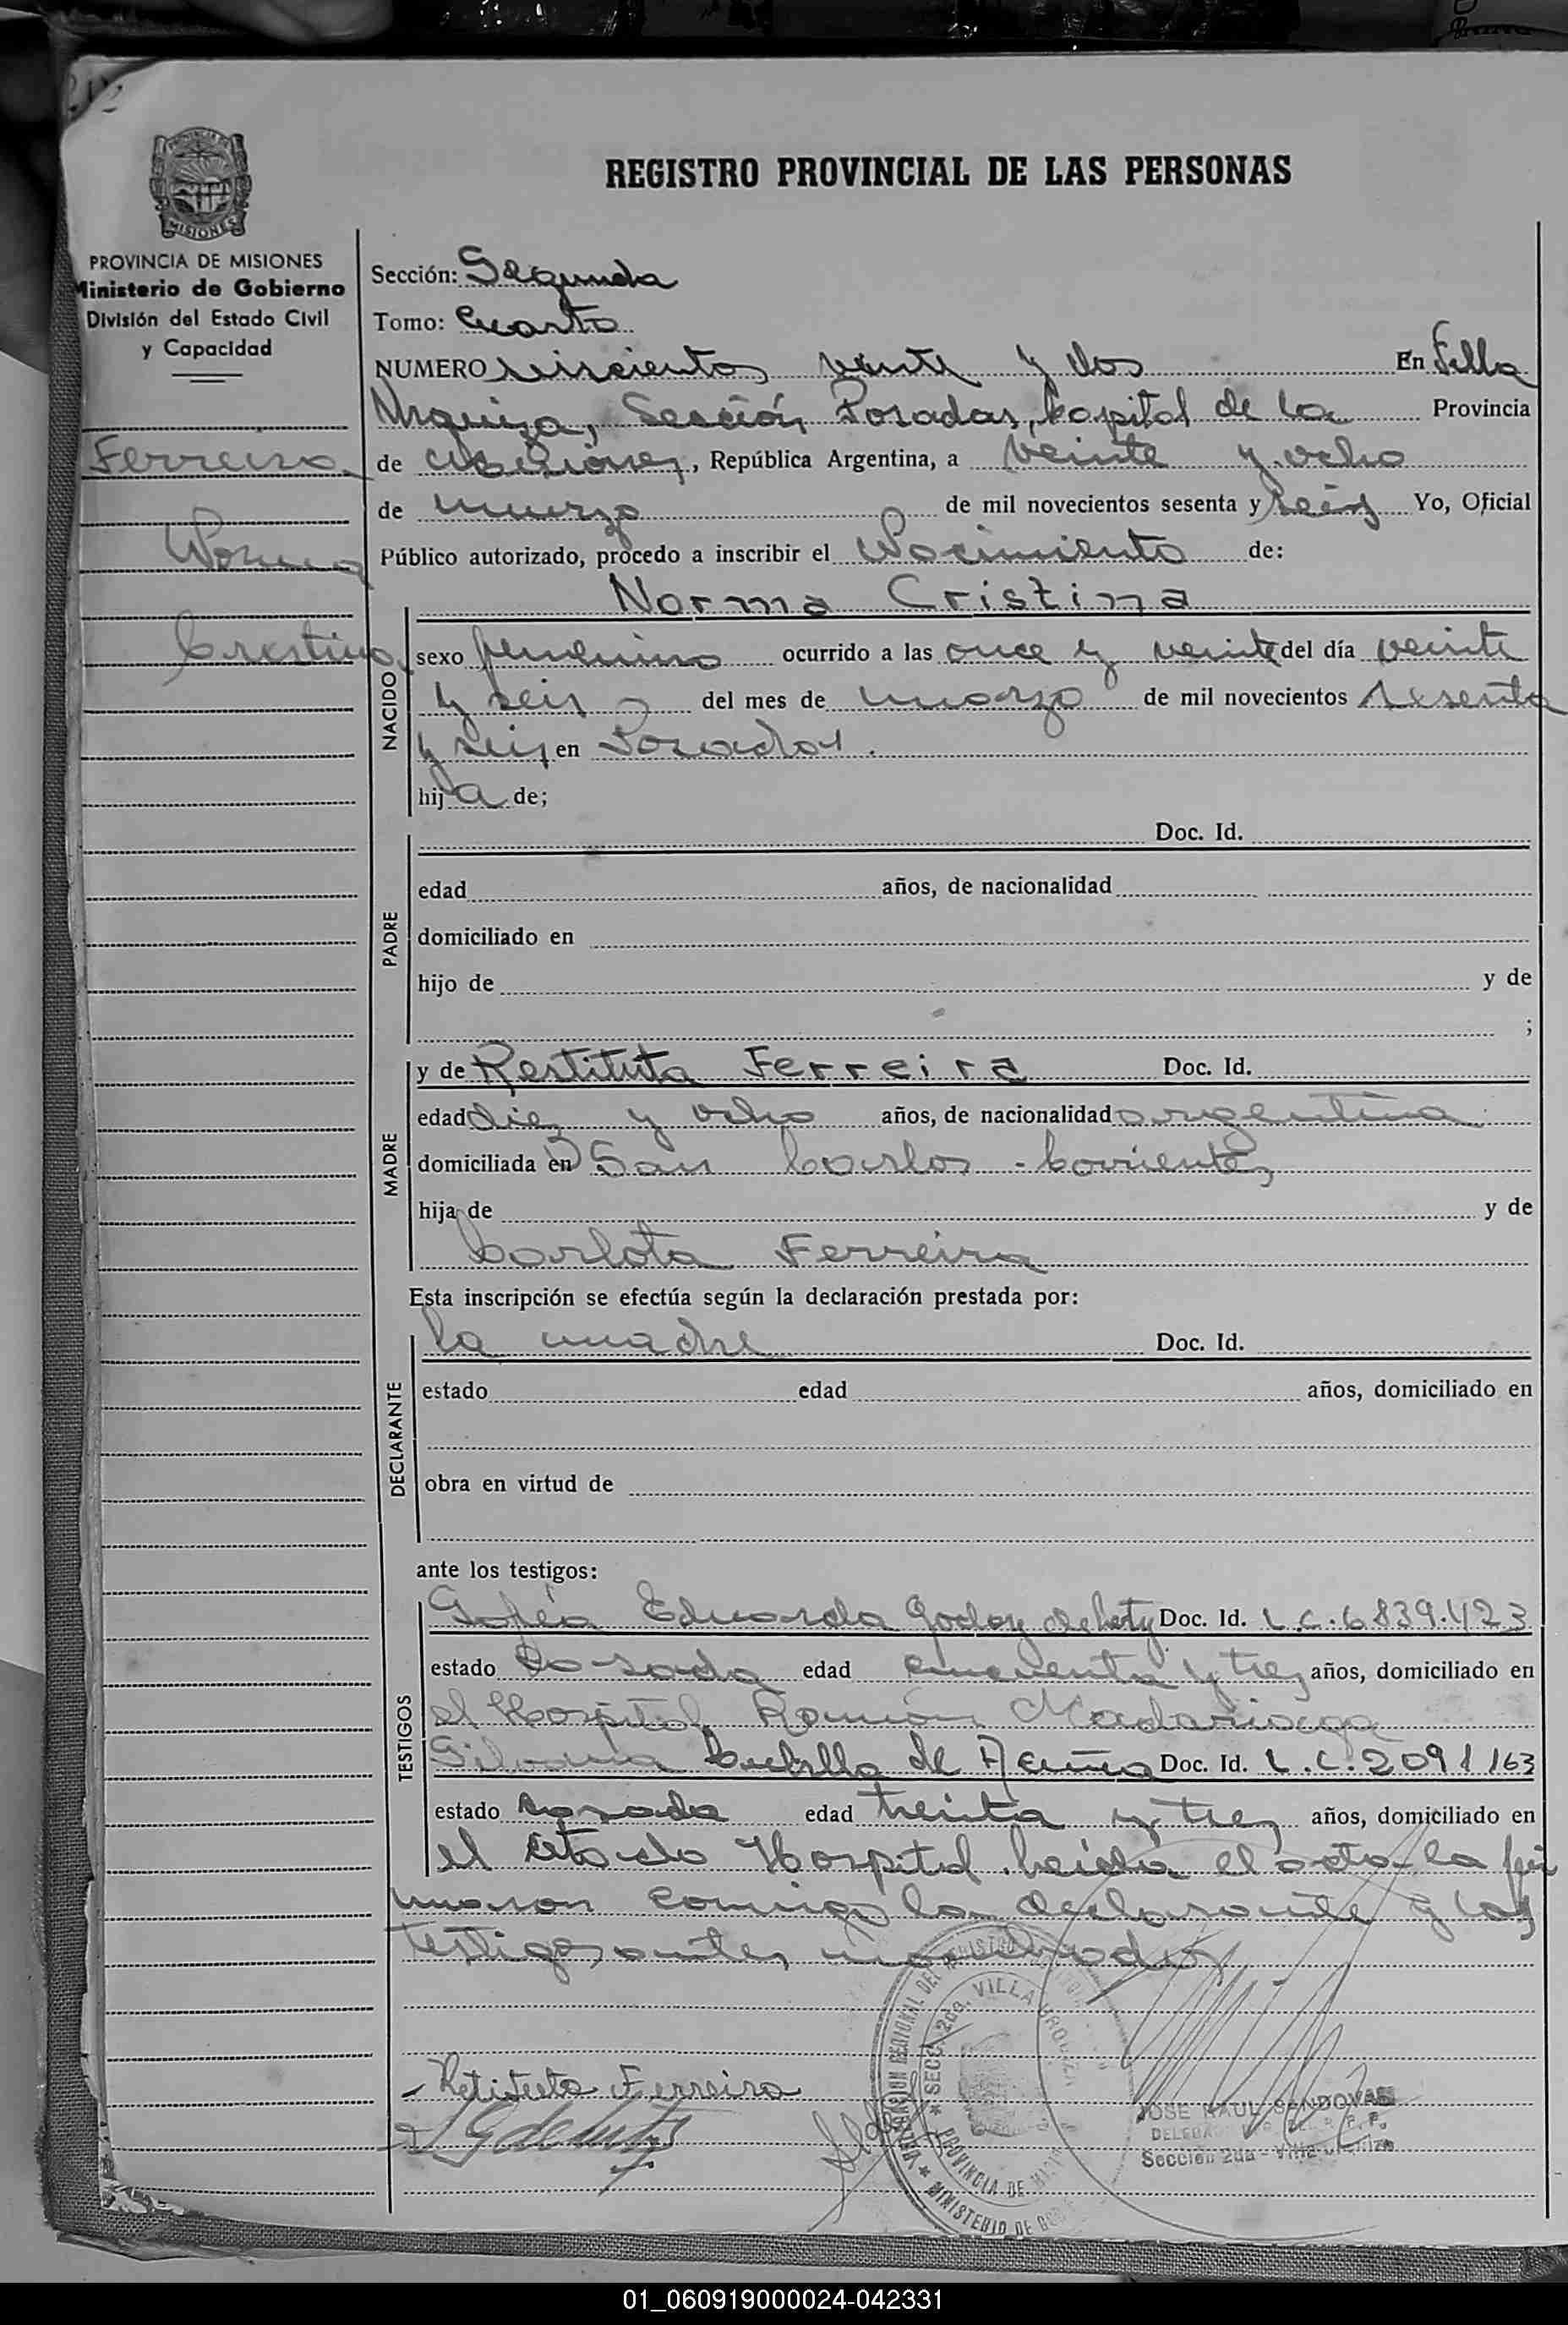 REGISTRO PROVINCIAL DE LAS PERSONAS
PROVINCIA DE MISIONES
Ministerio de Gobierno
División del Estado Civil
y Capacidad
Sección: Segunda
Tomo: Cuarto
NUMERO seiscientos veinte y dos En Villa
Urquiza, Sección Posadas, Capital de la Provincia
Ferreira
de Misiones, República Argentina, a veinte y ocho
de marzo de mil novecientos sesenta y seis Yo, Oficial
Norma
Público autorizado, procedo a inscribir el Nacimiento de:
Norma Cristina
Cristina
NACIDO
sexo femenino ocurrido a las once y veinte del día veinte
y seis del mes de marzo de mil novecientos sesenta
y seis en Posadas.
hija de;
PADRE
Doc. Id.
edad años, de nacionalidad
domiciliado en
hijo de y de
;
MADRE
y de Restituta Ferreira Doc. Id.
edad diez y ocho años, de nacionalidad argentina
domiciliada en San Carlos - Corrientes
hija de y de
Carlota Ferreira
Esta inscripción se efectúa según la declaración prestada por:
DECLARANTE
la madre Doc. Id.
estado edad años, domiciliado en
obra en virtud de
ante los testigos:
TESTIGOS
Eduarda Godoy de Doc. Id. L.C. 6839.423
estado Casada edad cincuenta y tres años, domiciliado en
el Hospital Ramón Madariaga
de Acuña Doc. Id. L.C. 2091163
estado casada edad treinta y tres años, domiciliado en
el citado Hospital. Leída el acta la fir
maron conmigo la declarante y los
testigos antes nombrados
Restituta Ferreira
JOSE RAUL SANDOVAL
Sección 2da - Villa Urquiza
SECC. 2da. VILLA URQUIZA
PROVINCIA DE
MINISTERIO DE
01_060919000024-042331